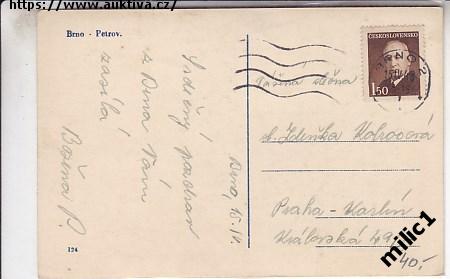 https://www.auktiva.cz/
Brno - Petrov.
ČESKOSLOVENSKO
1.50
BRNO 2
Srdečný pozdrav
z Brna Vám
zasílá
Božena P.
Brno, 15.IV.
Vážená slečna
sl. Zdenka
Praha - Karlín
Královská 49
40,-
124
milic1